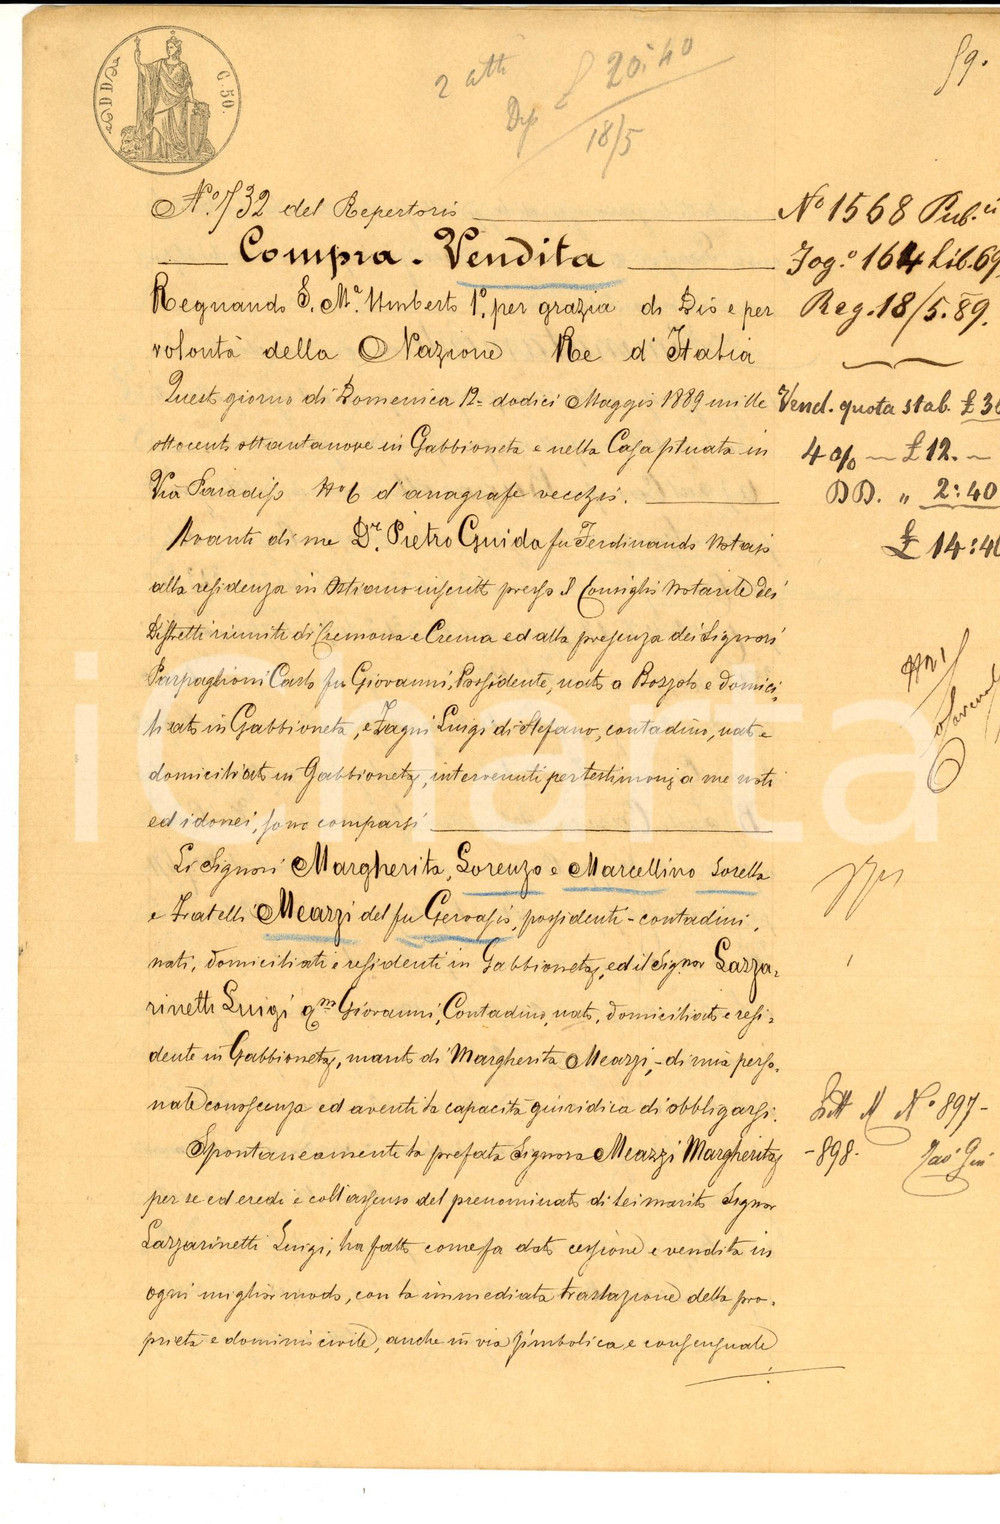 C. 50.
2 atti £ 20:40
Dep 18/5
59.
N.º 732 del Repertorio
Nº 1568 Pub.ci
Compra - Vendita
Fog.º 164 Lib. 69
Regnando S. M.ª Umberto 1º per grazia di Dio e per
Reg. 18/5.89.
volontà della Nazione Re d'Italia
Quest giorno di Domenica 12 = dodici Maggio 1889 mille
Vend. quota stab. £ 30
ottocento ottantanove in Gabbioneta e nella Casa situata in
4 % — £ 12. —
Via Paradiso Nº 6 d'anagrafe vecchio.
DD. „ 2:40
£ 14:40
Avanti di me D.r Pietro Guida fu Ferdinando Notajo
alla residenza in Ostiano inscritto presso il Consiglio Notarile dei
Distretti riuniti di Cremona e Crema ed alla presenza dei Signori
Parpaglioni Carlo fu Giovanni, Possidente, nato a Bozzolo e domici-
liato in Gabbioneta, e Fagni Luigi di Stefano, contadino, nato e
domiciliato in Gabbioneta, intervenuti per testimonj a me noti
ed idonei, sono comparsi
Li Signori Margherita, Lorenzo e Marcellino Sorella
e Fratelli Mearzi del fu Gervasio, possidenti - contadini,
nati, domiciliati e residenti in Gabbioneta, ed il Signor Lazza-
rinetti Luigi qm Giovanni, Contadino, nato, domiciliato e resi-
dente in Gabbioneta, marito di Margherita Mearzi, - di mia perso-
nale conoscenza ed aventi la capacità giuridica di obbligarsi.
Nº 897-
-898-
Spontaneamente la prefata Signora Meazzi Margherita
per se ed eredi e coll'assenso del prenominato di lei marito Signor
Lazzarinetti Luigi, ha fatto come fa dato cessione e vendita in
ogni miglior modo, con la immediata traslazione della pro-
prietà e dominio civile, anche in via simbolica e consensuale
iCharta